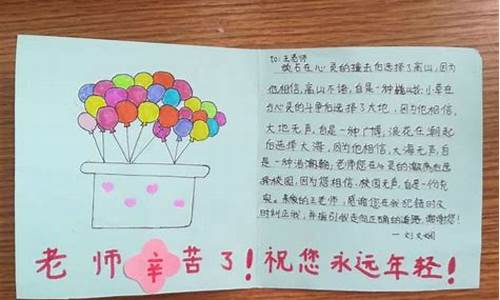 to:王老师
岩石在心灵的撞击后选择了高山,因为
他相信,高山不语,自是一种巍峨;小草在
为心灵的斗争后选择了大地,因为他相信,
大地无声,自是一种广博;浪花在潮起
后选择大海,因为他相信,大海无声,自
是一种浩瀚;老师您在心灵的
择校园,因为您相信,校园无声,自是一份充
实。亲爱的王老师,感谢您在我犯错时及
时纠正我,并指引我走向正确的道路,谢谢您!
老师辛苦了!祝您永远年轻!